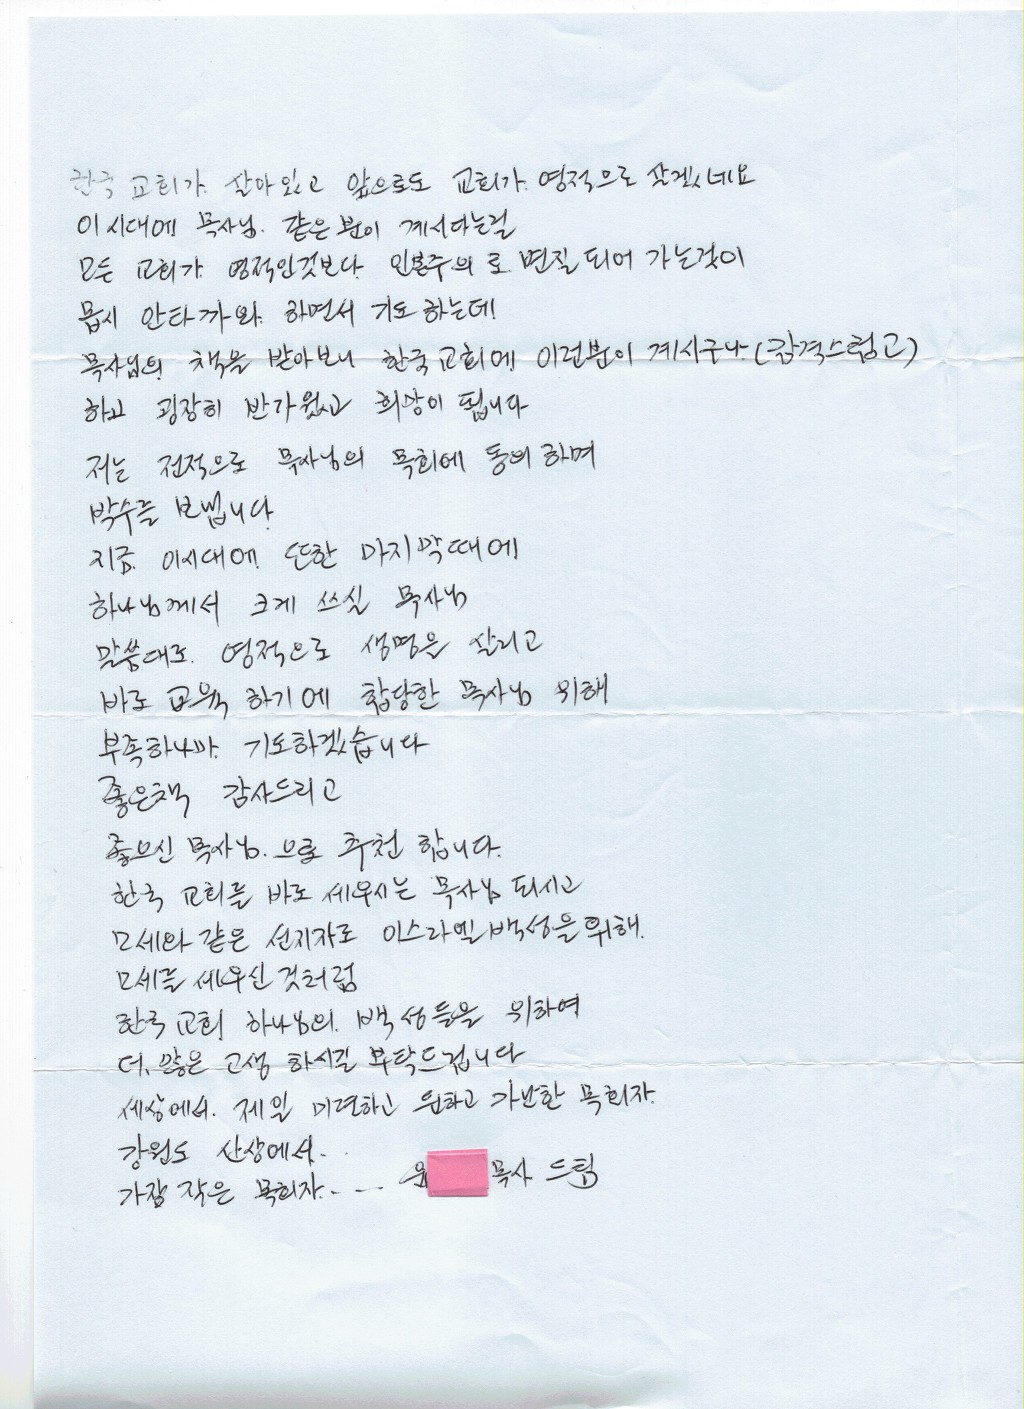 한국 교회가 살아있고 앞으로도 교회가 영적으로 살겠네요
이시대에 목사님. 같은 분이 계시다는걸
모든 교회가 영적인것보다 인본주의 로 변질 되어 가는것이
몹시 안타까와 하면서 기도 하는데
목사님의 책을 받아보니 한국교회에 이런분이 계시구나 (감격스럽고)
하고 굉장히 반가웠고 희망이 됩니다
저는 전적으로 목사님의 목회에 동의 하며
박수를 보냅니다
지금. 이시대에 또한 마지막때에
하나님께서 크게 쓰실 목사님
말씀대로. 영적으로 생명을 살리고
바로 교육 하기에 합당한 목사님 위해
부족하나마 기도하겠습니다
좋은책 감사드리고
좋으신 목사님.으로 추천 합니다.
한국 교회를 바로 세우시는 목사님 되시고
모세와 같은 선지자로 이스라엘백성을 위해.
모세를 세우신 것처럼
한국교회 하나님의 백성들을 위하여
더. 많은 고생 하시길 부탁드립니다
세상에서. 제일 미련하고 하고 목회자.
강원도 산상에서..
가장 작은 목회자.--- 목사 드림